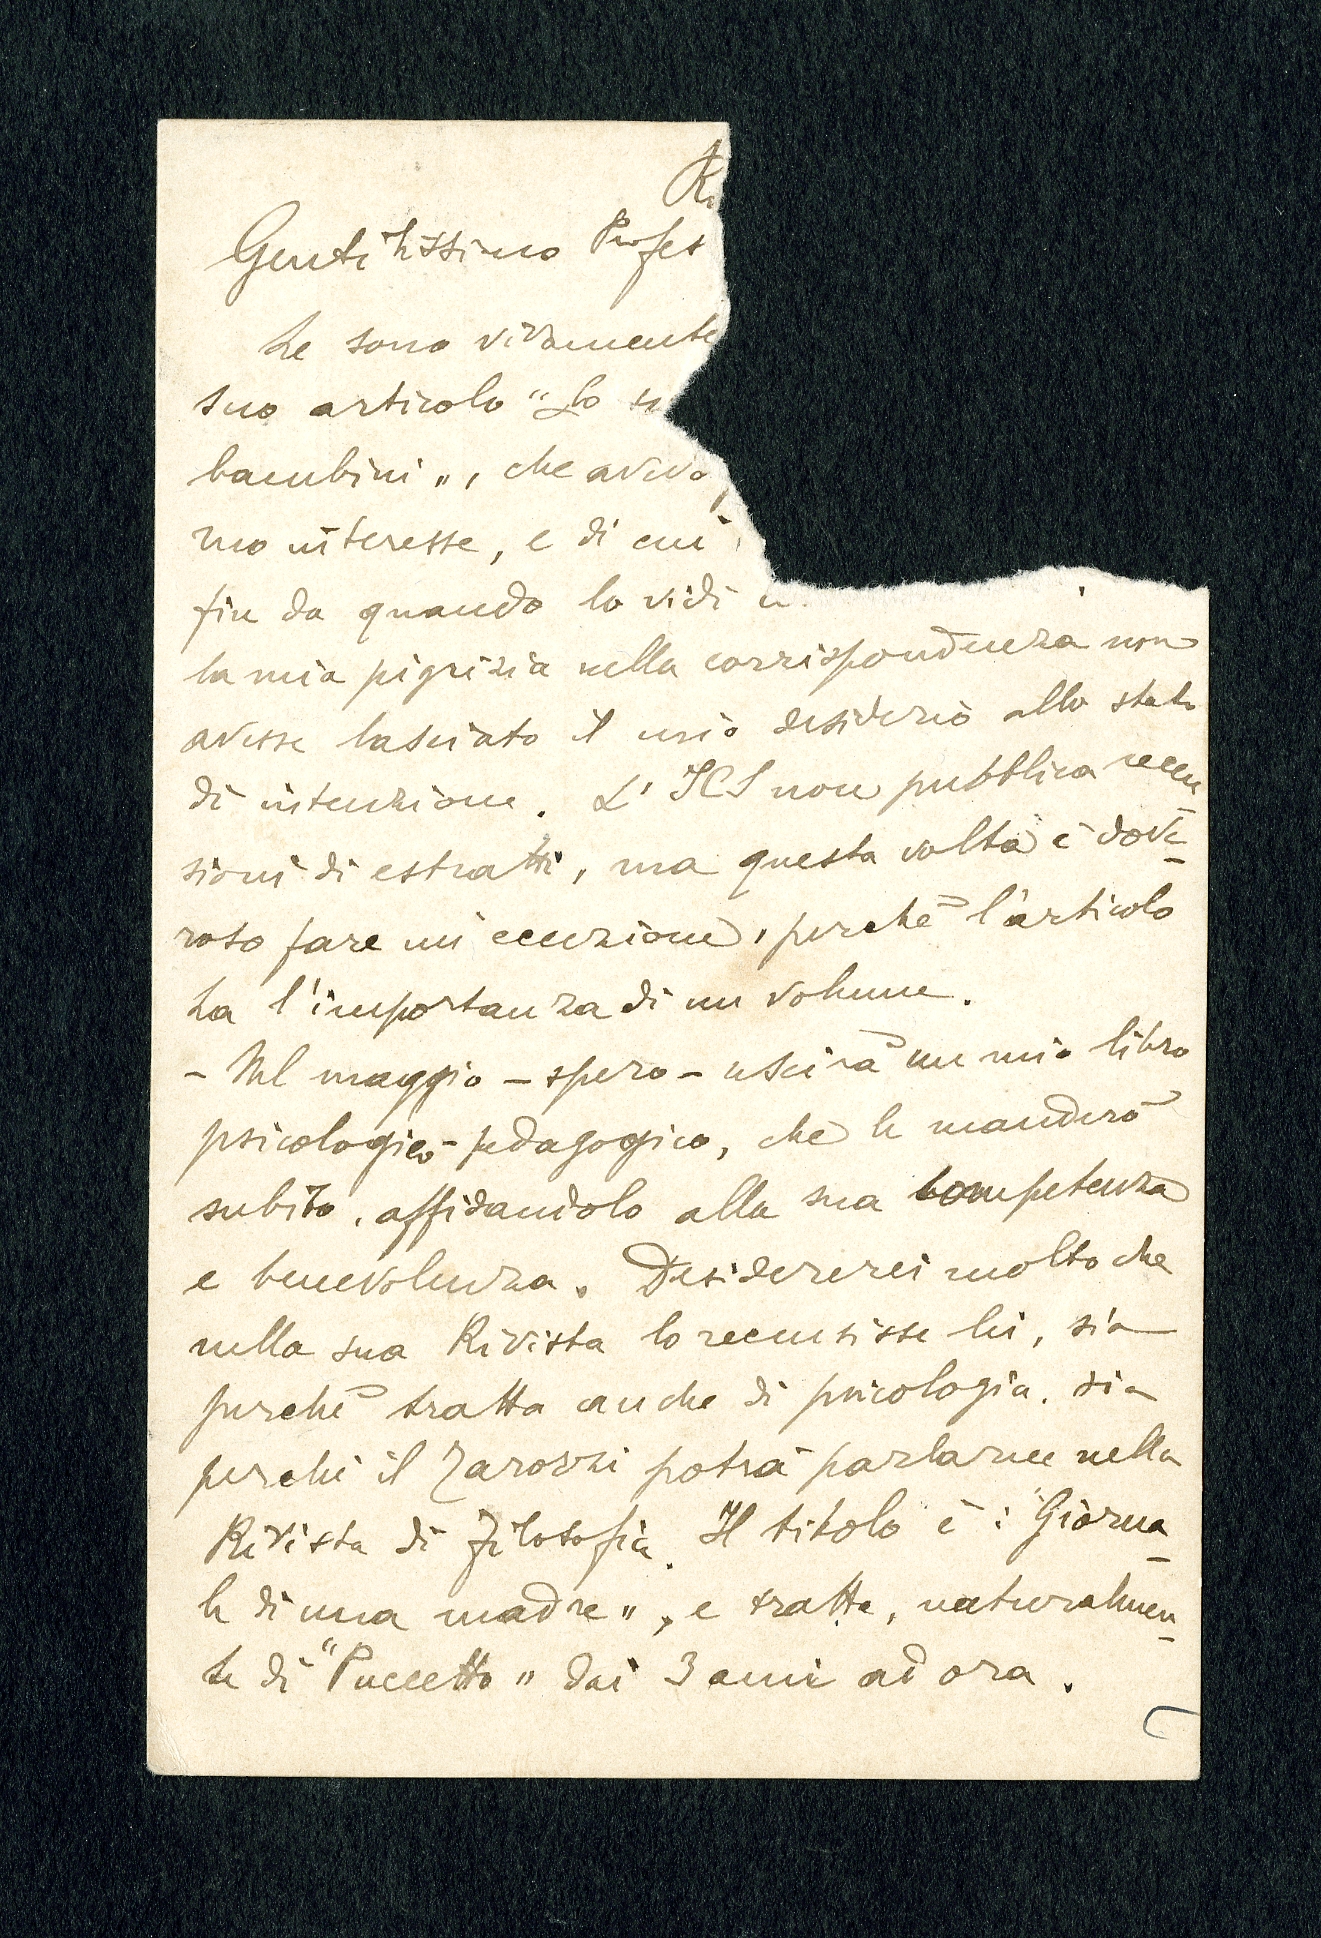 R
Gentilissimo Profes
Le sono vivamente
suo articolo "Lo
bambini", che avevo
mo interesse, e di cui
fin da quando lo vidi
la mia pigrizia nella corrispondenza non
avesse lasciato il mio desiderio allo stato
di intenzione. L'ICS non pubblica recen
sioni di estratti, ma questa volta è dove-
roso fare un'eccezione, perchè l'articolo
ha l'importanza di un volume.
- Nel maggio - spero - uscirà un mio libro
psicologico-pedagogico, che le manderò
subito, affidandolo alla sua competenza
e benevolenza. Desidererei molto che
nella sua Rivista lo recensisse lei, sia
perchè tratta anche di psicologia, sia
perchè il potrà parlarne nella
Rivista di Filosofia. Il titolo è: "Giorna-
le di una madre", e tratta, naturalmen-
te di "Puccetto" dai 3 anni ad ora.